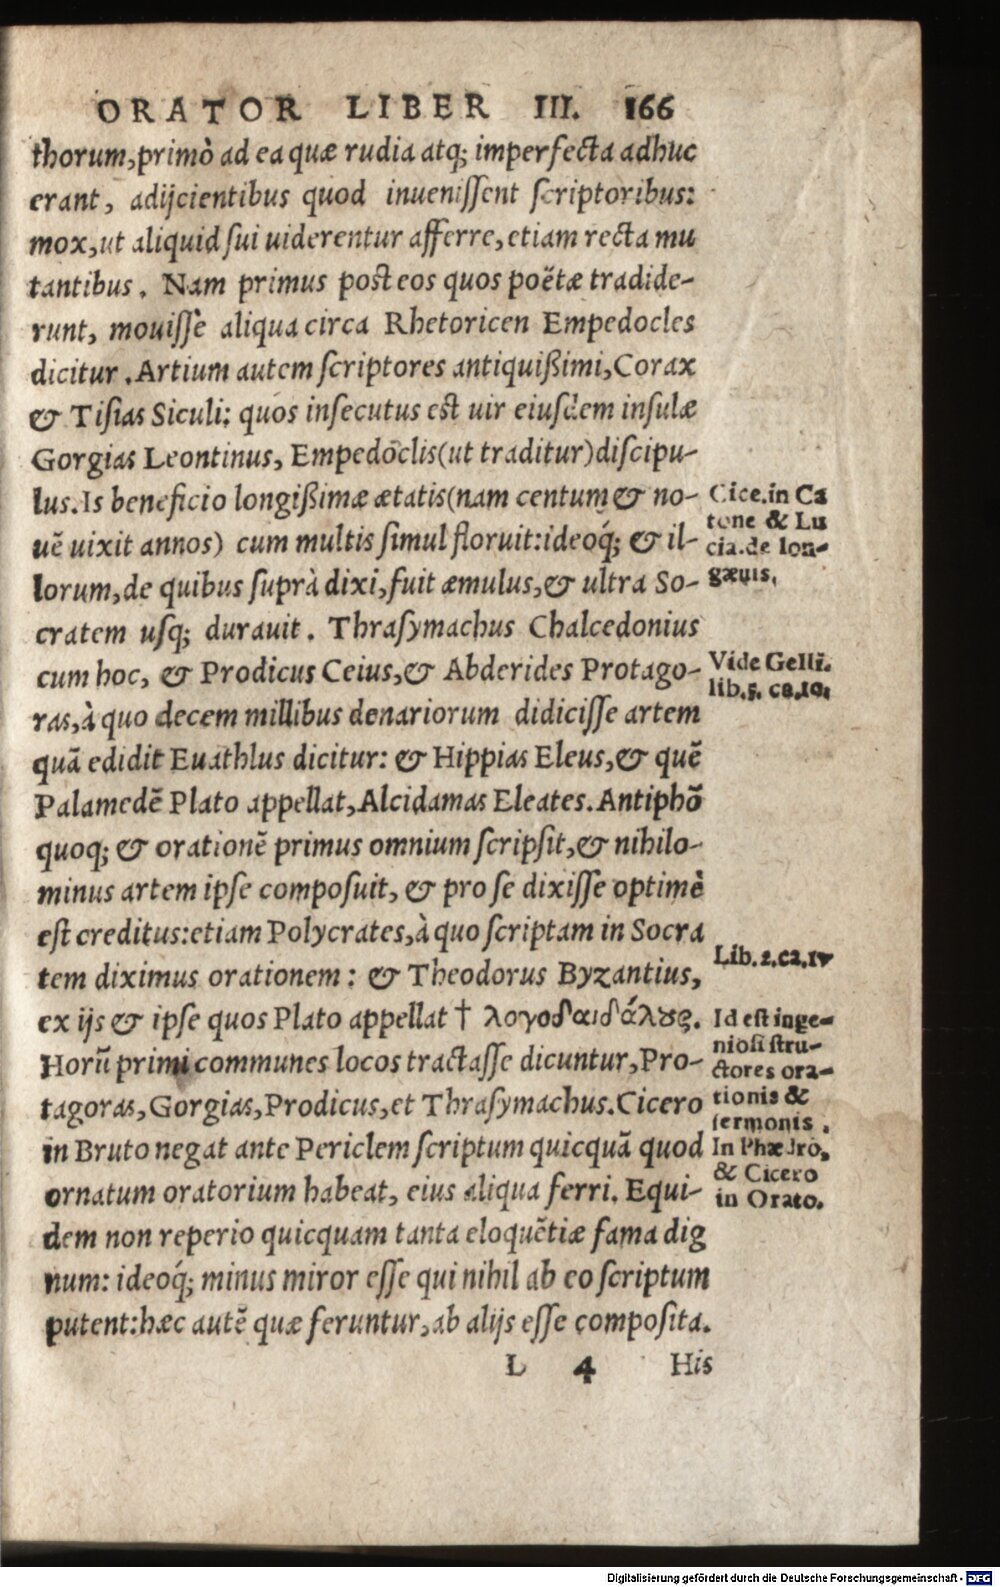 ORATOR LIBER III. 166
thorum, primò ad ea quæ rudia atq; imperfecta adhuc
erant, adijcientibus quod inueniſſent ſcriptoribus:
mox, ut aliquid ſui uiderentur afferre, etiam recta mu
tantibus. Nam primus post eos quos poëtæ tradide-
runt, mouiſſe aliqua circa Rhetoricen Empedocles
dicitur. Artium autem ſcriptores antiquißimi, Corax
& Tiſias Siculi: quos inſecutus est uir eiuſdem inſulæ
Gorgias Leontinus, Empedoclis (ut traditur) diſcipu-
lus. Is beneficio longißimæ ætatis (nam centum & no-
uē uixit annos) cum multis ſimul floruit: ideoq́; & il-
lorum, de quibus ſuprà dixi, fuit æmulus, & ultra So-
cratem uſq; durauit. Thraſymachus Chalcedonius
cum hoc, & Prodicus Ceius, & Abderides Protago-
ras, à quo decem millibus denariorum didiciſſe artem
quā edidit Euathlus dicitur: & Hippias Eleus, & quē
Palamedē Plato appellat, Alcidamas Eleates. Antiphō
quoq; & orationē primus omnium ſcripſit, & nihilo-
minus artem ipſe compoſuit, & pro ſe dixiſſe optimè
eſt creditus: etiam Polycrates, à quo ſcriptam in Socra
tem diximus orationem: & Theodorus Byzantius,
ex ijs & ipſe quos Plato appellat † λογοδαιδάλȣς.
Horū primi communes locos tractaſſe dicuntur, Pro-
tagoras, Gorgias, Prodicus, et Thraſymachus. Cicero
in Bruto negat ante Periclem ſcriptum quicquā quod
ornatum oratorium habeat, eius aliqua ferri. Equi-
dem non reperio quicquam tanta eloquētiæ fama dig
num: ideoq́; minus miror eſſe qui nihil ab eo ſcriptum
putent: hæc autē quæ feruntur, ab alijs eſſe compoſita.
L 4 His
Cice. in Ca
tone & Lu
cia. de lon-
gæuis.
Vide Gelli.
lib. 5. ca. 10.
Lib. 2. ca. 17
Id eſt inge-
nioſi ſtru-
ctores ora-
tionis &
ſermonis.
In Phædro,
& Cicero
in Orato.
Digitalisierung gefördert durch die Deutsche Forschungsgemeinschaft - DFG